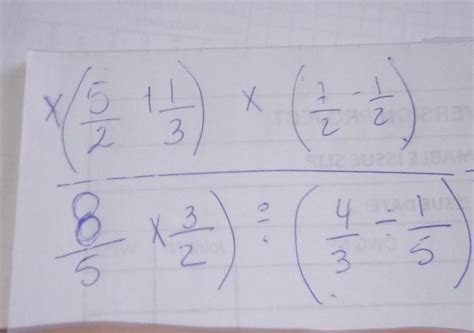 ×(5/2 + 1/3) × (7/2 - 1/2)
8/5 × 3/2) ÷ (4/3 ÷ 1/5)